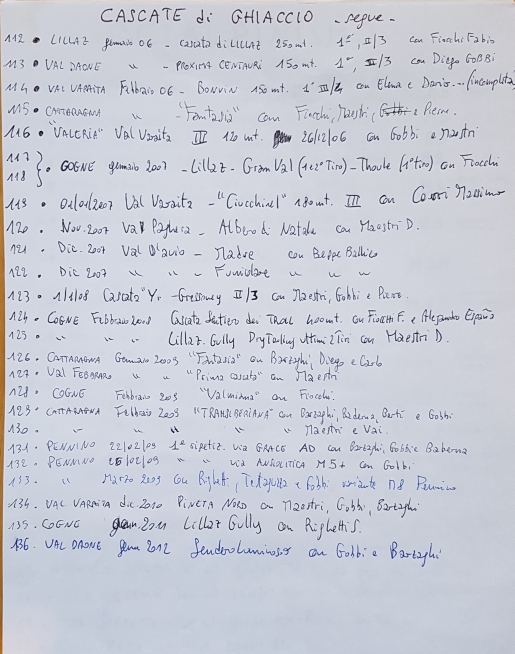 CASCATE di GHIACCIO - segue -
112 • LILLAZ gennaio 06 - cascata di LILLAZ 250 mt. 1°, II/3 con Fiocchi Fabio
113 • VAL DAONE " - PROXIMA CENTAURI 150 mt. 1°, III/3 con Diego GOBBI
114 • VAL VARAITA Febbraio 06 - BONVIN 150 mt. 1° III/4 con Elena e Dario... (incompleta)
115 • CATTARAGNA " - "Fantasia" con Fiocchi, Maestri, Gobbi e Pierre.
116 • "VALERIA" Val Varaita III 120 mt. 26/12/06 con Gobbi e Maestri
117
118 } • COGNE gennaio 2007 - Lillaz - Gran Val (1e2° Tiro) - Thoule (1° tiro) con Fiocchi
119 • 01/01/2007 Val Varaita - "Ciucchinel" 180 mt. III con Massimo
120 • Nov. 2007 Val Paghera - Albero di Natale con Maestri D.
121 • Dic. 2007 Val D'avio - Madre con Beppe
122 • Dic 2007 " " - Funivolare " " "
123 • 1/1/08 Cascata "Y" - Gressoney II/3 con Maestri, Gobbi e Pierre
124 • COGNE Febbraio 2008 Cascata Sentiero dei TROLL 400 mt. con FIOCCHI F. e Alejandro España
125 • " " Lillaz Gully DryTooling ultimi 2 Tiri con Maestri D.
126 • CATTARAGNA Gennaio 2009 "Fantasia" con Barzaghi, Diego e Carlo
127 • Val FEBBRARO " "Prima cascata" con Maestri
128 • COGNE Febbraio 2009 "Valmiana" con Fiocchi.
129 • CATTARAGNA Febbraio 2009 "TRANSIBERIANA" con Barzaghi, Baderna, Berti e Gobbi
130 • " " " " Maestri e Vai.
131 • PENNINO 22/02/09 1ª ripetiz. via GRACE AD con Barzaghi, Gobbi e Baderna
132 • PENNINO 25/02/09 " via ANFOLITICA M5+ con Gobbi
133 • " Marzo 2009 con Righetti, e Gobbi variante M8 Pennino
134. VAL VARAITA dic 2010 PINETA NORD con Maestri, Gobbi, Barzaghi
135. COGNE genn. 2011 Lillaz Gully con Righetti S.
136. VAL DAONE genn 2012 Senderoluminoso con Gobbi e Barzaghi